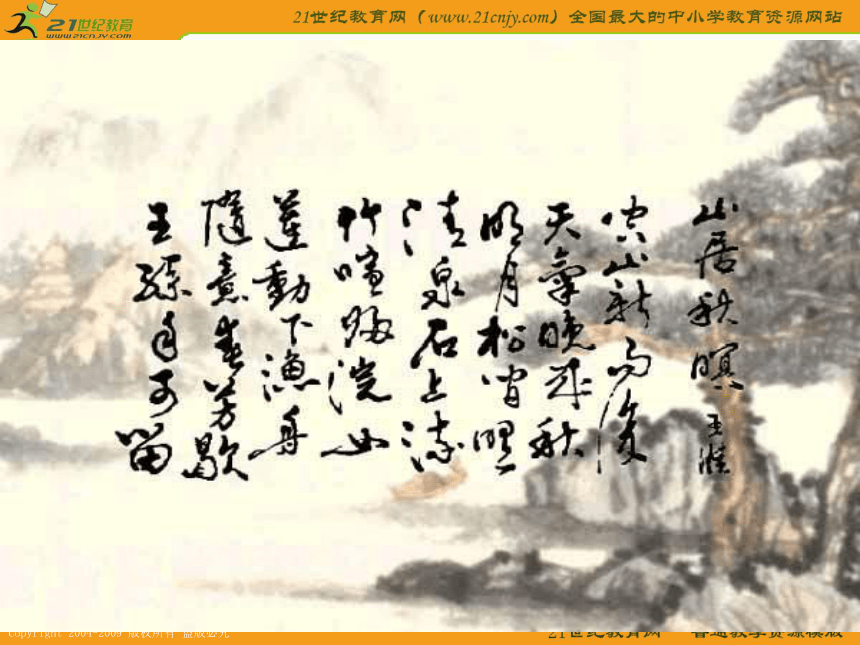 21世纪教育
www.21cnjy.com
21世纪教育网（www.21cnjy.com）全国最大的中小学教育资源网站
山居秋暝 王維
空山新雨後
天氣晚來秋
明月松間照
清泉石上流
竹喧歸浣女
蓮動下漁舟
隨意春芳歇
王孫自可留
Copyright 2004-2009 版权所有 盗版必究
21世纪教育网 普通教学资源模版